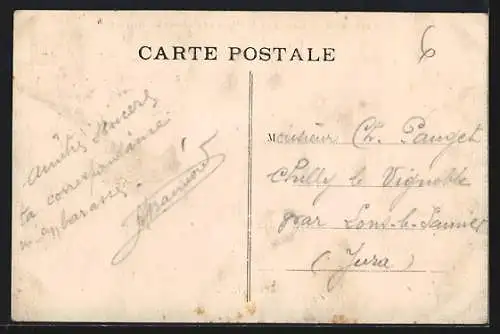 CARTE POSTALE
6
Amitiés sincères
ta correspondance
m'embarasse.
Monsieur Ch. Pauget
Chilly le Vignoble
par Lons-le-Saunier
(Jura)